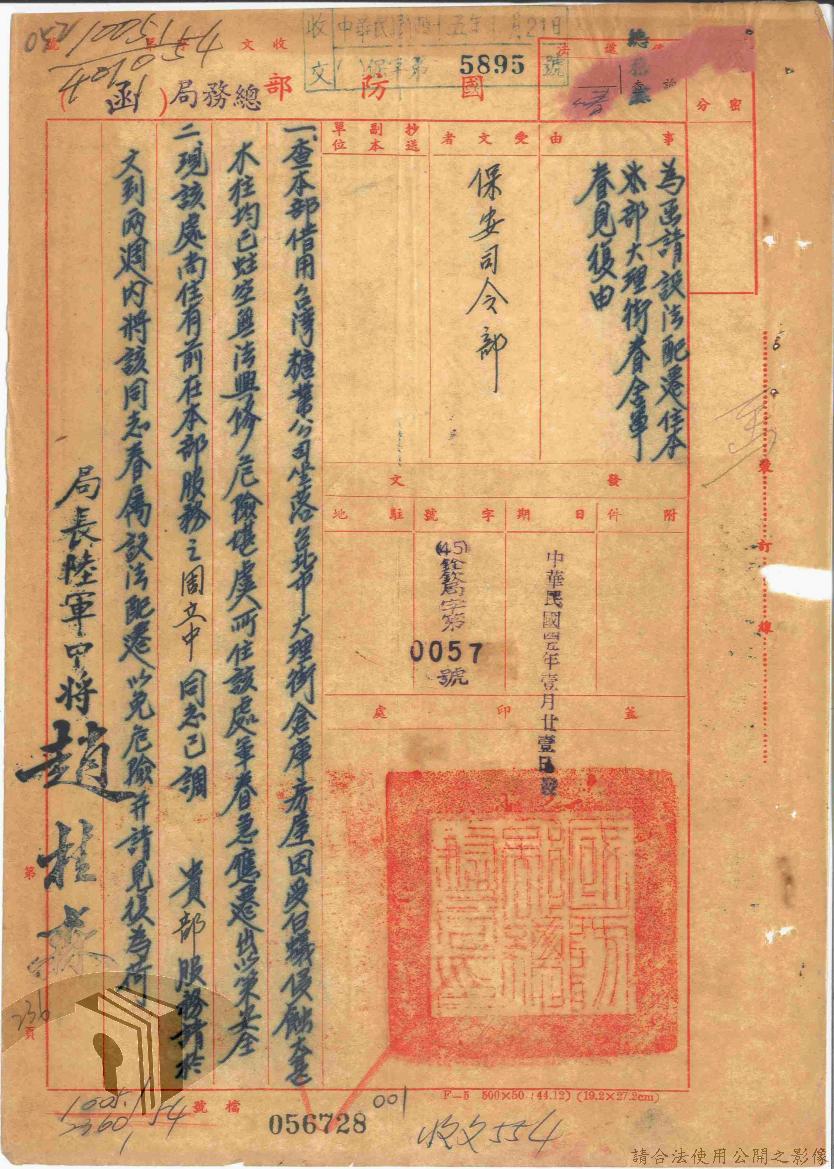 收文 中華民國四十五年1月21日
5895 號
國防部總務局(函)
密分
事由
為函請設法配遷住本
部大理街眷舍軍
眷見復由
受文者
保安司令部
抄送副本單位
發文
附件
日期
中華民國四五年壹月廿壹日發
字號
(45)銓欽局字第
0057
號
駐地
蓋印處
一、查本部借用台灣糖業公司坐落台北市大理街倉庫房屋因受白蟻侵蝕大息
木柱均已蛀空無法興修危險堪虞所住該處軍眷急應遷出以策安全
二、現該處尚住有前在本部服務之周立中同志已調 貴部服務請於
文到兩週內將該同志眷屬設法配遷以免危險并請見復為荷
局長陸軍中將趙桂森
裝訂線
第236頁
檔號
1005.1/2360.1/54
056728
001
F—5 500×50 (44.12) (19.2×27.2cm)
收文554
請合法使用公開之影像